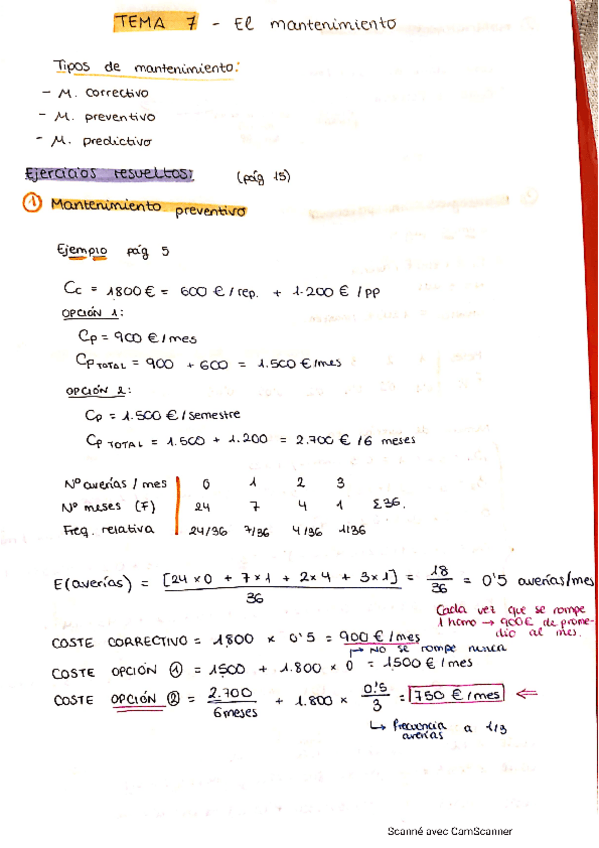 TEMA 7 - El mantenimiento
Tipos de mantenimiento:
- M. correctivo
- M. preventivo
- M. predictivo
Ejercicios resueltos: (pág 15)
① Mantenimiento preventivo
Ejemplo pág 5
Cc = 1800 € = 600 €/rep. + 1.200 €/pp
OPCIÓN 1:
Cp = 900 €/mes
Cp TOTAL = 900 + 600 = 1.500 €/mes
OPCIÓN 2:
Cp = 1.500 €/semestre
Cp TOTAL = 1.500 + 1.200 = 2.700 €/6 meses
Nº averías/mes 0 1 2 3
Nº meses (F) 24 7 4 1 Σ36.
Freq. relativa 24/36 7/36 4/36 1/36
E(averías) = [24×0 + 7×1 + 2×4 + 3×1] / 36 = 18/36 = 0'5 averías/mes
Cada vez que se rompe
1 horno → 900€ de prome-
dio al mes.
COSTE CORRECTIVO = 1800 × 0'5 = 900 €/mes
↳ NO se rompe nunca
COSTE OPCIÓN ① = 1500 + 1.800 × 0 = 1500 €/mes
COSTE OPCIÓN ② = 2.700/6meses + 1.800 × 0'5/3 = 750 €/mes ⇐
↳ Frecuencia a 1/3
averías
Scanné avec CamScanner